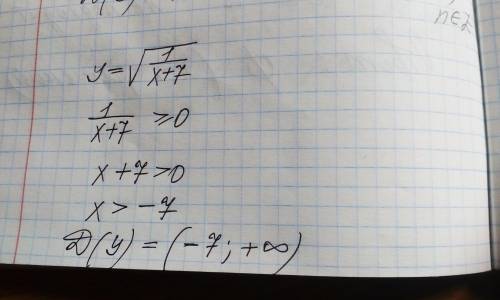 n∈Z
y=√(1/(x+7))
1/(x+7) ≥0
x+7>0
x>-7
D(y)=(-7;+∞)